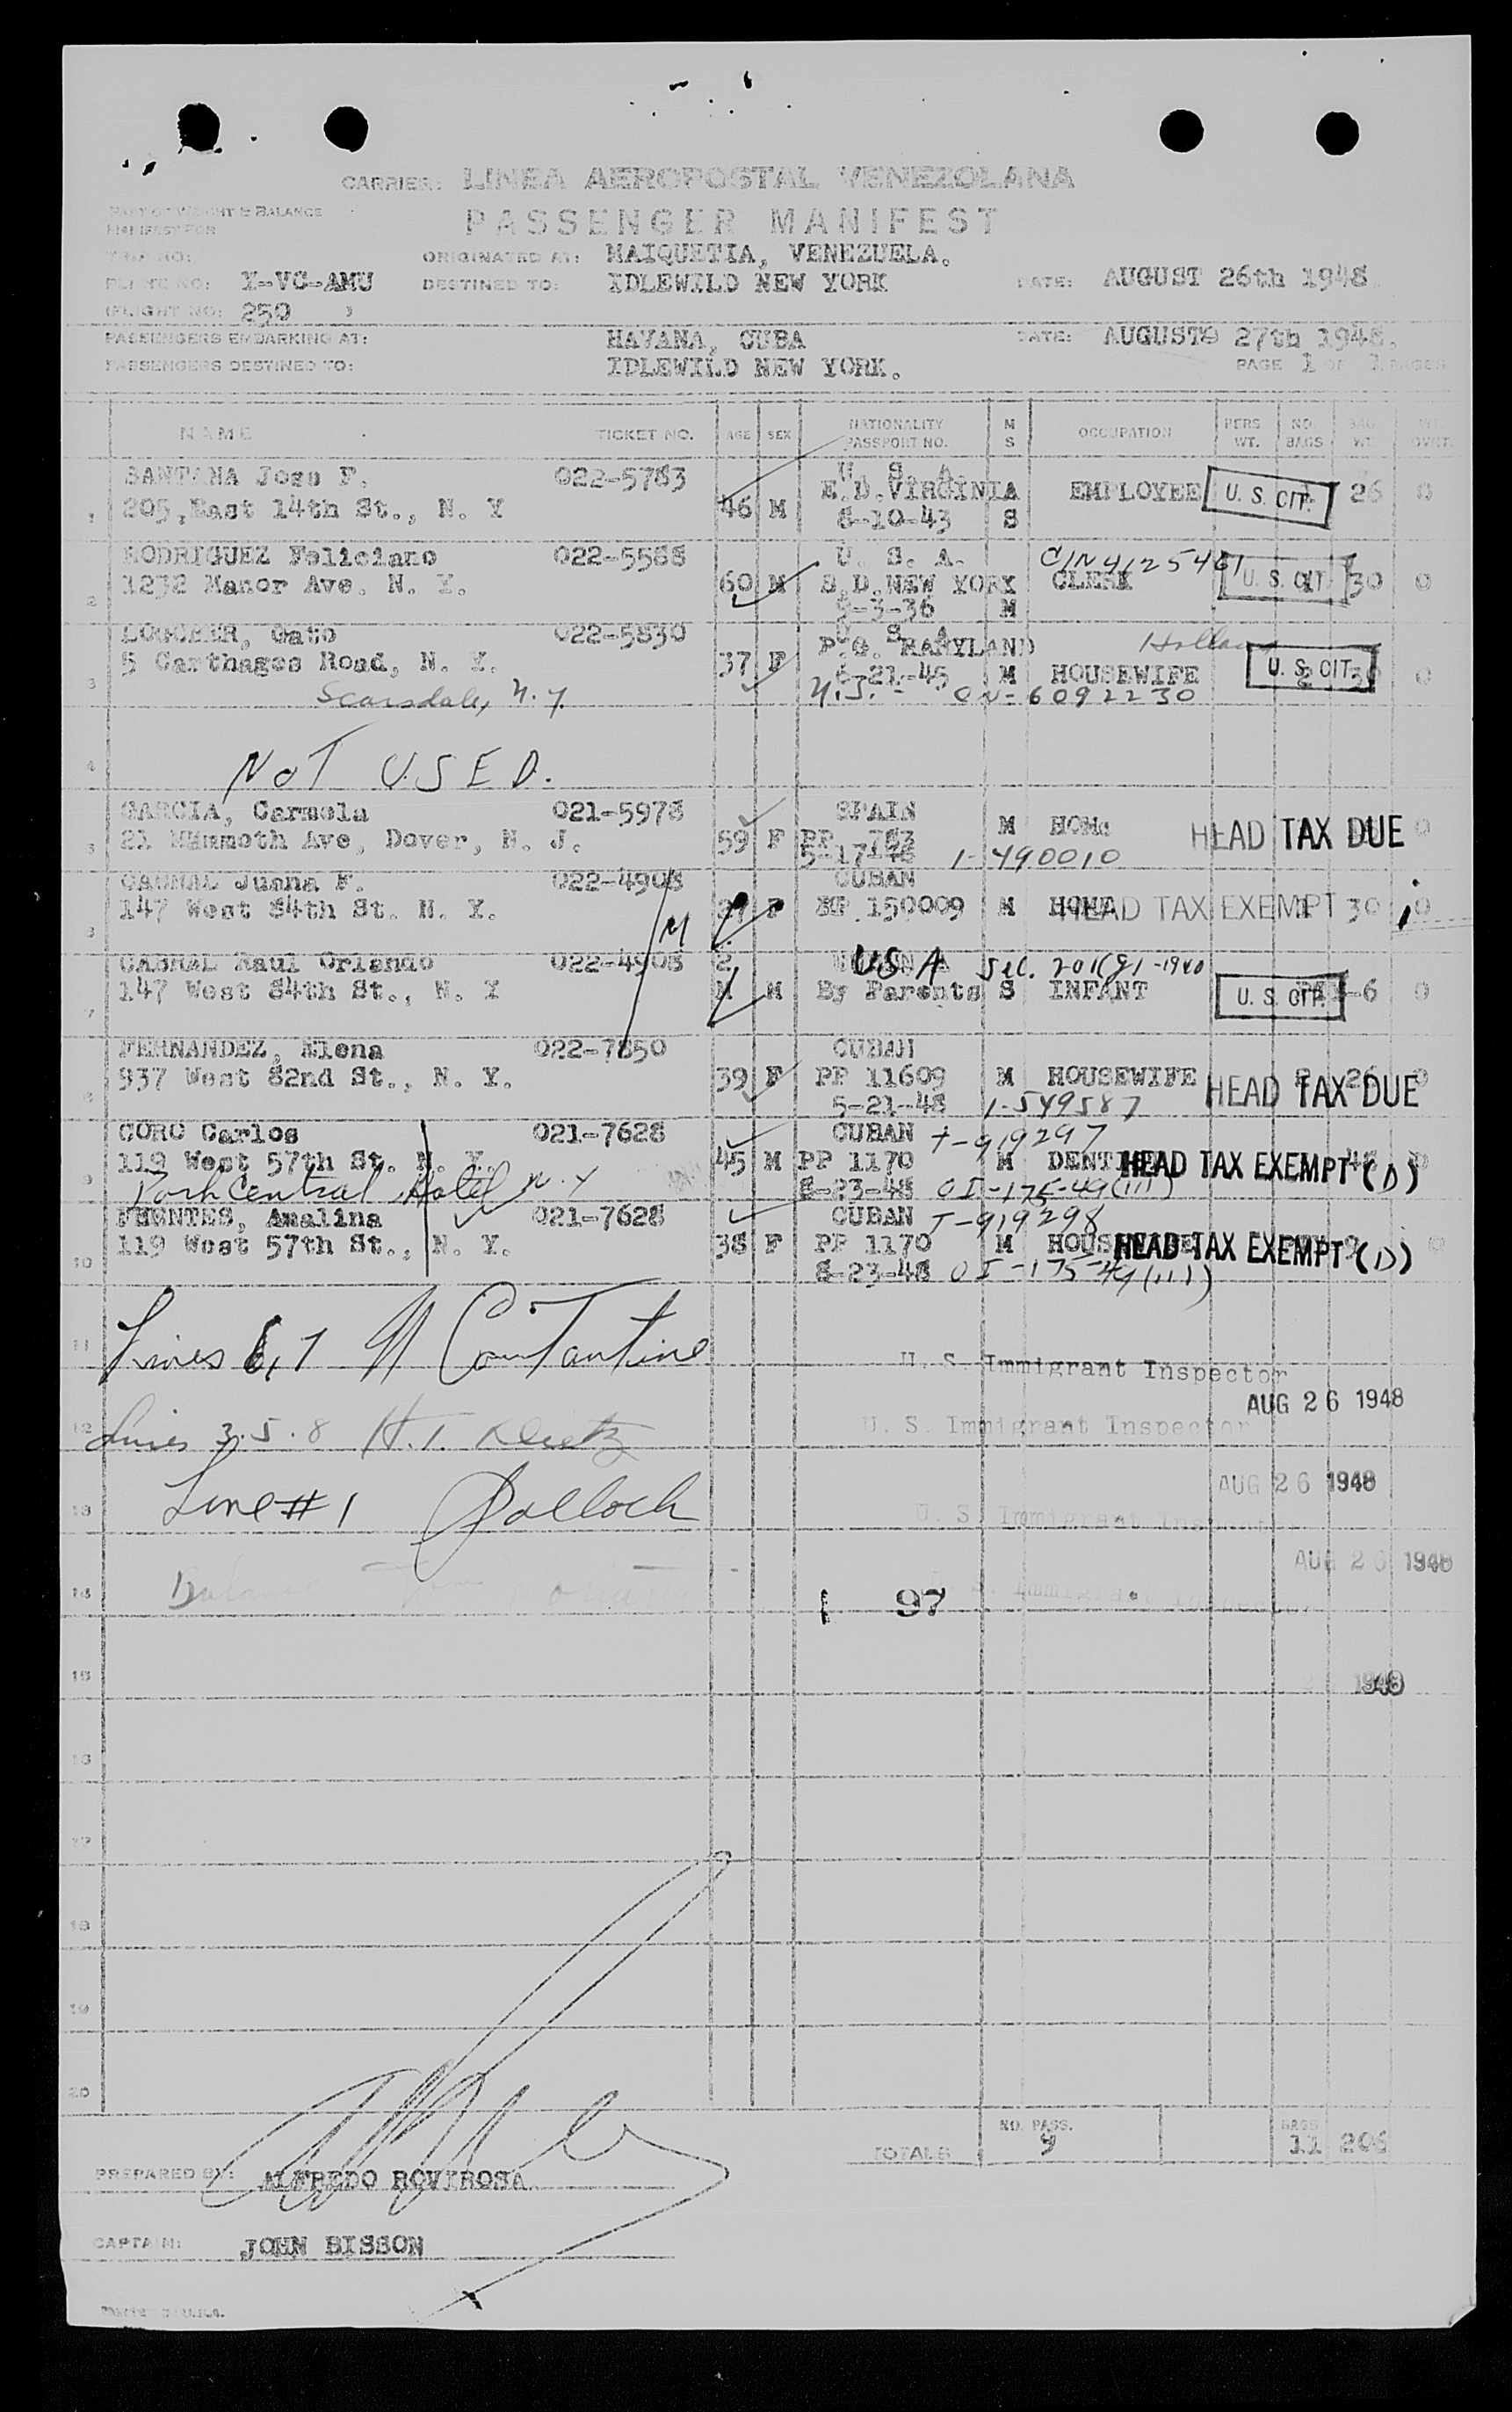 CARRIER: LINEA AEROPOSTAL VENEZOLANA
PART OF WEIGHT & BALANCE
MANIFEST FOR
PASSENGER MANIFEST
TRIP NO:
ORIGINATED AT: MAIQUETIA, VENEZUELA.
PLANE NO: Y-VC-AMU DESTINED TO: IDLEWILD NEW YORK DATE: AUGUST 26th 1948
(FLIGHT NO: 250 )
PASSENGERS EMBARKING AT: HAVANA, CUBA DATE: AUGUST 27th 1948.
PASSENGERS DESTINED TO: IDLEWILD NEW YORK. PAGE 1 OF 1 PAGES
NAME TICKET NO. AGE SEX NATIONALITY PASSPORT NO. M S OCCUPATION PERS. WT. NO. BAGS BAG WT. WT. OVWT.
SANTANA Jose F. 022-5783 U. S. A.
1 205, East 14th St., N. Y 46 M E.D. VIRGINIA EMPLOYEE U. S. CIT. 26 0
8-10-43 S
RODRIGUEZ Feliciano 022-5588 U. S. A. C/N 4125461
2 1232 Manor Ave. N. Y. 60 M S.D. NEW YORK CLERK U. S. CIT 30 0
9-3-36 M
022-5830 U. S. A.
5 Carthages Road, N. Y. 37 F P.O. MARYLAND Holland
3 6-21-45 M HOUSEWIFE U. S. CIT. 30 0
Scarsdale, N. Y. N.J. - CN-6092230
4 NOT USED.
GARCIA, Carmela 021-5978 SPAIN
5 21 Mammoth Ave, Dover, N. J. 59 F PP 783 M HOME HEAD TAX DUE 0
5-17-48 1-490010
CABRAL Juana F. 022-4908 CUBAN
147 West 84th St. N. Y. M F PP 150009 M HOME HEAD TAX EXEMPT 30 0
CABRAL Raul Orlando 022-4908 2 U.S.A Sec. 201(g) -1940
7 147 West 84th St., N. Y M M By Parents S INFANT U. S. CIT. 6 0
FERNANDEZ, Elena 022-7850 CUBAN
8 937 West 82nd St., N. Y. 39 F PP 11609 M HOUSEWIFE HEAD TAX DUE 26 0
5-21-48 1-549587
CORO Carlos 021-7628 CUBAN T-919297
9 119 West 57th St. N. Y. 45 M PP 1170 M DENTIST HEAD TAX EXEMPT (D)
Park Central Hotel N. Y 8-23-48 OI-175-49(111)
FUENTES, Amalina 021-7628 CUBAN T-919298
10 119 West 57th St., N. Y. 38 F PP 1170 M HOUSEWIFE HEAD TAX EXEMPT (D) 0
8-23-48 OI-175-49(111)
11 Lines 6, 7 U. S. Immigrant Inspector
AUG 26 1948
12 Lines 3. 5. 8 U. S. Immigrant Inspector
AUG 26 1948
13 Line #1 U. S. Immigrant Inspector
AUG 26 1948
14 97 U. S. Immigrant Inspector
15 1948
16
17
18
19
20
TOTALS NO. PASS. 9 BAGS 11 206
PREPARED BY: ALFREDO ROVIROSA
CAPTAIN: JOHN BISSON